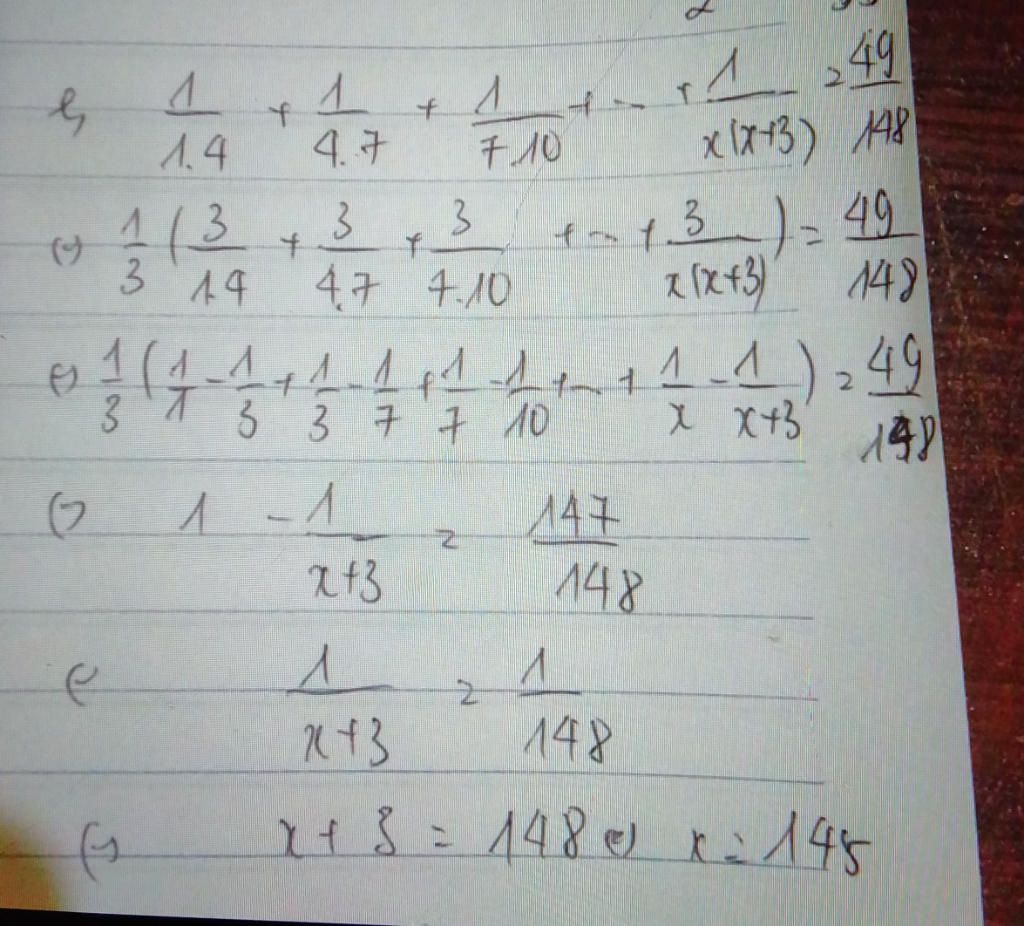 e, 1/1.4 + 1/4.7 + 1/7.10 + ... + 1/x(x+3) = 49/148
(=) 1/3 (3/1.4 + 3/4.7 + 3/7.10 + ... + 3/x(x+3)) = 49/148
(=) 1/3 (1/1 - 1/3 + 1/3 - 1/7 + 1/7 - 1/10 + ... + 1/x - 1/x+3) = 49/148
(=) 1 - 1/x+3 = 147/148
(=) 1/x+3 = 1/148
(=) x+3 = 148 (=) x = 145